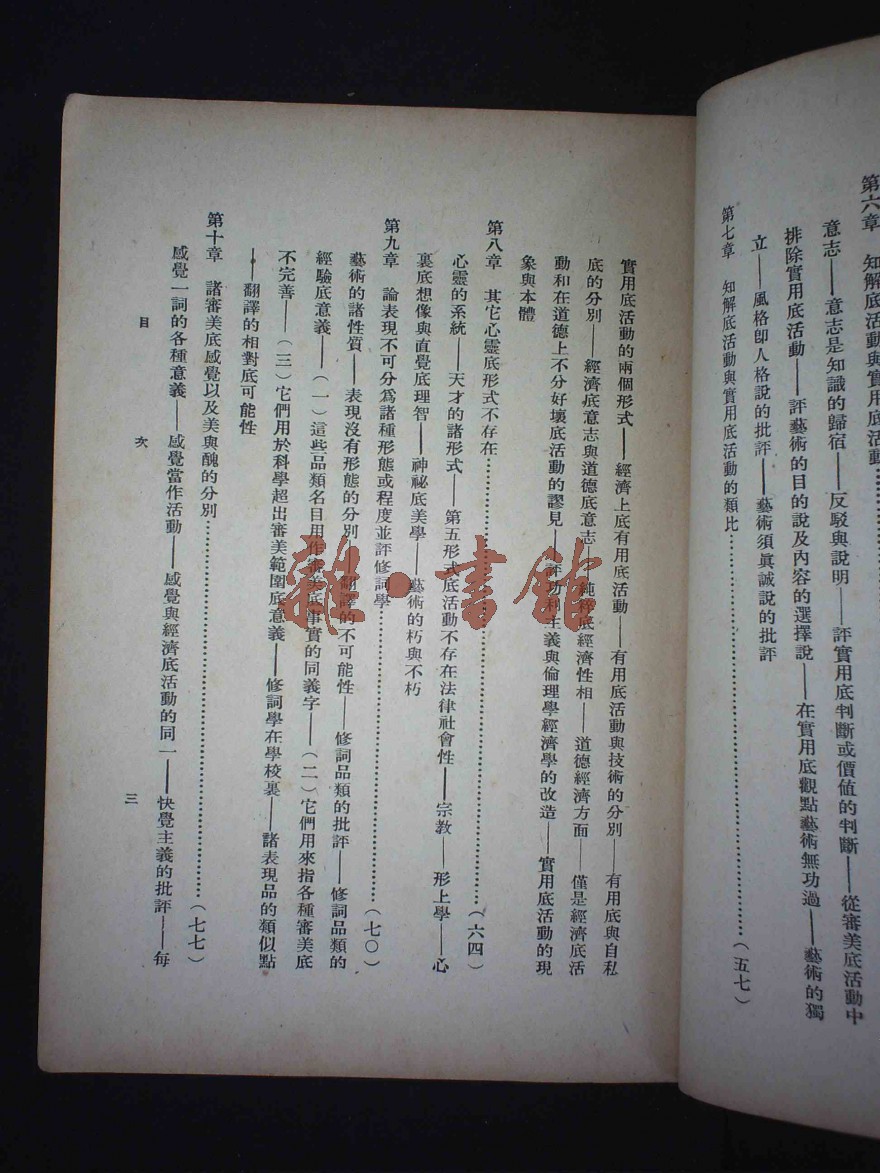 第六章　知解底活動與實用底活動
意志——意志是知識的歸宿——反駁與說明——評實用底判斷或價值的判斷——從審美底活動中
排除實用底活動——評藝術的目的說及內容的選擇說——在實用底觀點藝術無功過——藝術的獨
立——風格卽人格說的批評——藝術須眞誠說的批評
第七章　知解底活動與實用底活動的類比……………………（五七）
實用底活動的兩個形式——經濟上底有用底活動——有用底活動與技術的分別——有用底與自私
底的分別——經濟底意志與道德底意志——純粹底經濟性相——道德經濟方面——僅是經濟底活
動和在道德上不分好壞底活動的謬見——評功利主義與倫理學經濟學的改造——實用底活動的現
象與本體
第八章　其它心靈底形式不存在……………………（六四）
心靈的系統——天才的諸形式——第五形式底活動不存在法律社會性——宗教——形上學——心
裏底想像與直覺底理智——神祕底美學——藝術的朽與不朽
第九章　論表現不可分爲諸種形態或程度並評修詞學……………………（七〇）
藝術的諸性質——表現沒有形態的分別——翻譯的不可能性——修詞品類的批評——修詞品類的
經驗底意義——（一）這些品類名目用作審美底事實的同義字——（二）它們用來指各種審美底
不完善——（三）它們用於科學超出審美範圍底意義——修詞學在學校裏——諸表現品的類似點
——翻譯的相對底可能性
第十章　諸審美底感覺以及美與醜的分別……………………（七七）
感覺一詞的各種意義——感覺當作活動——感覺與經濟底活動的同一——快覺主義的批評——每
目　次　三
雜·書館